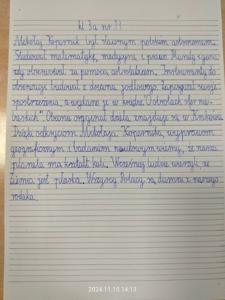 kl 3a nr 11
Mikołaj Kopernik był sławnym polskim astronomem.
Studiował matematykę, medycynę i prawo. Planety i gwia-
zdy obserwował za pomocą astrolabium. Instrumenty do
obserwacji budował z drewna jodłowego. Zapisywał swoje
spostrzeżenia, a wydane je w książce "O obrotach sfer nie-
bieskich". Obecnie oryginał dzieła znajduje się w Krakowie.
Dzięki odkryciom Mikołaja Kopernika, wyprawom
geograficznym i badaniom naukowym wiemy, że nasza
planeta ma kształt kuli. Wcześniej ludzie wierzyli, że
Ziemia jest płaska. Wszyscy Polacy są dumni z naszego
rodaka.
2024.11.15 14:13